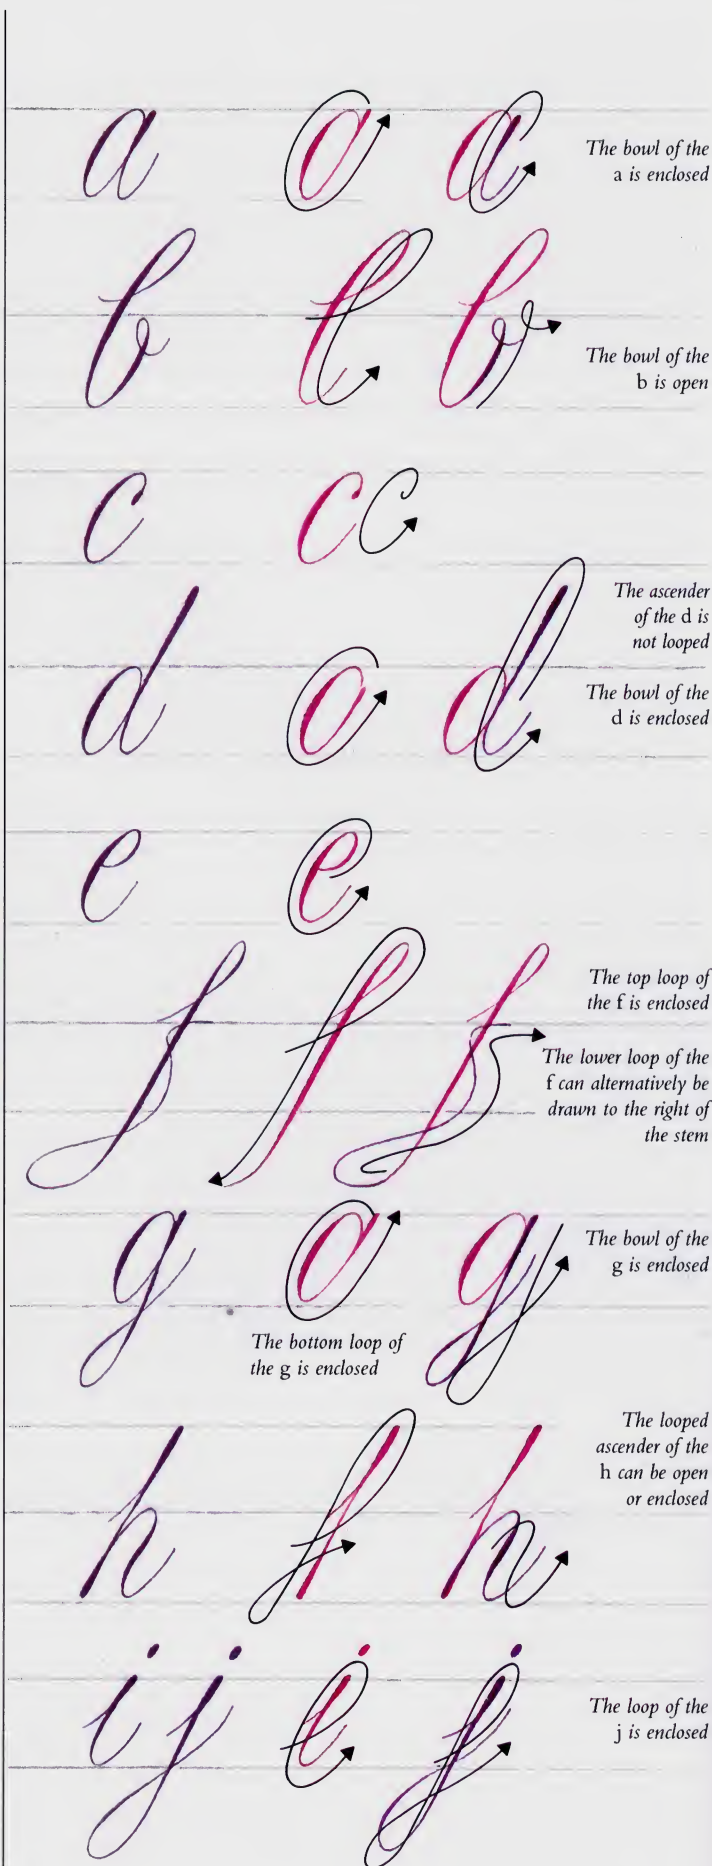 a a a
The bowl of the
a is enclosed
b b b
The bowl of the
b is open
c c c
The ascender
of the d is
not looped
d d d
The bowl of the
d is enclosed
e e
f f f
The top loop of
the f is enclosed
The lower loop of the
f can alternatively be
drawn to the right of
the stem
g a g
The bowl of the
g is enclosed
The bottom loop of
the g is enclosed
The looped
ascender of the
h can be open
or enclosed
h h h
i j i j
The loop of the
j is enclosed